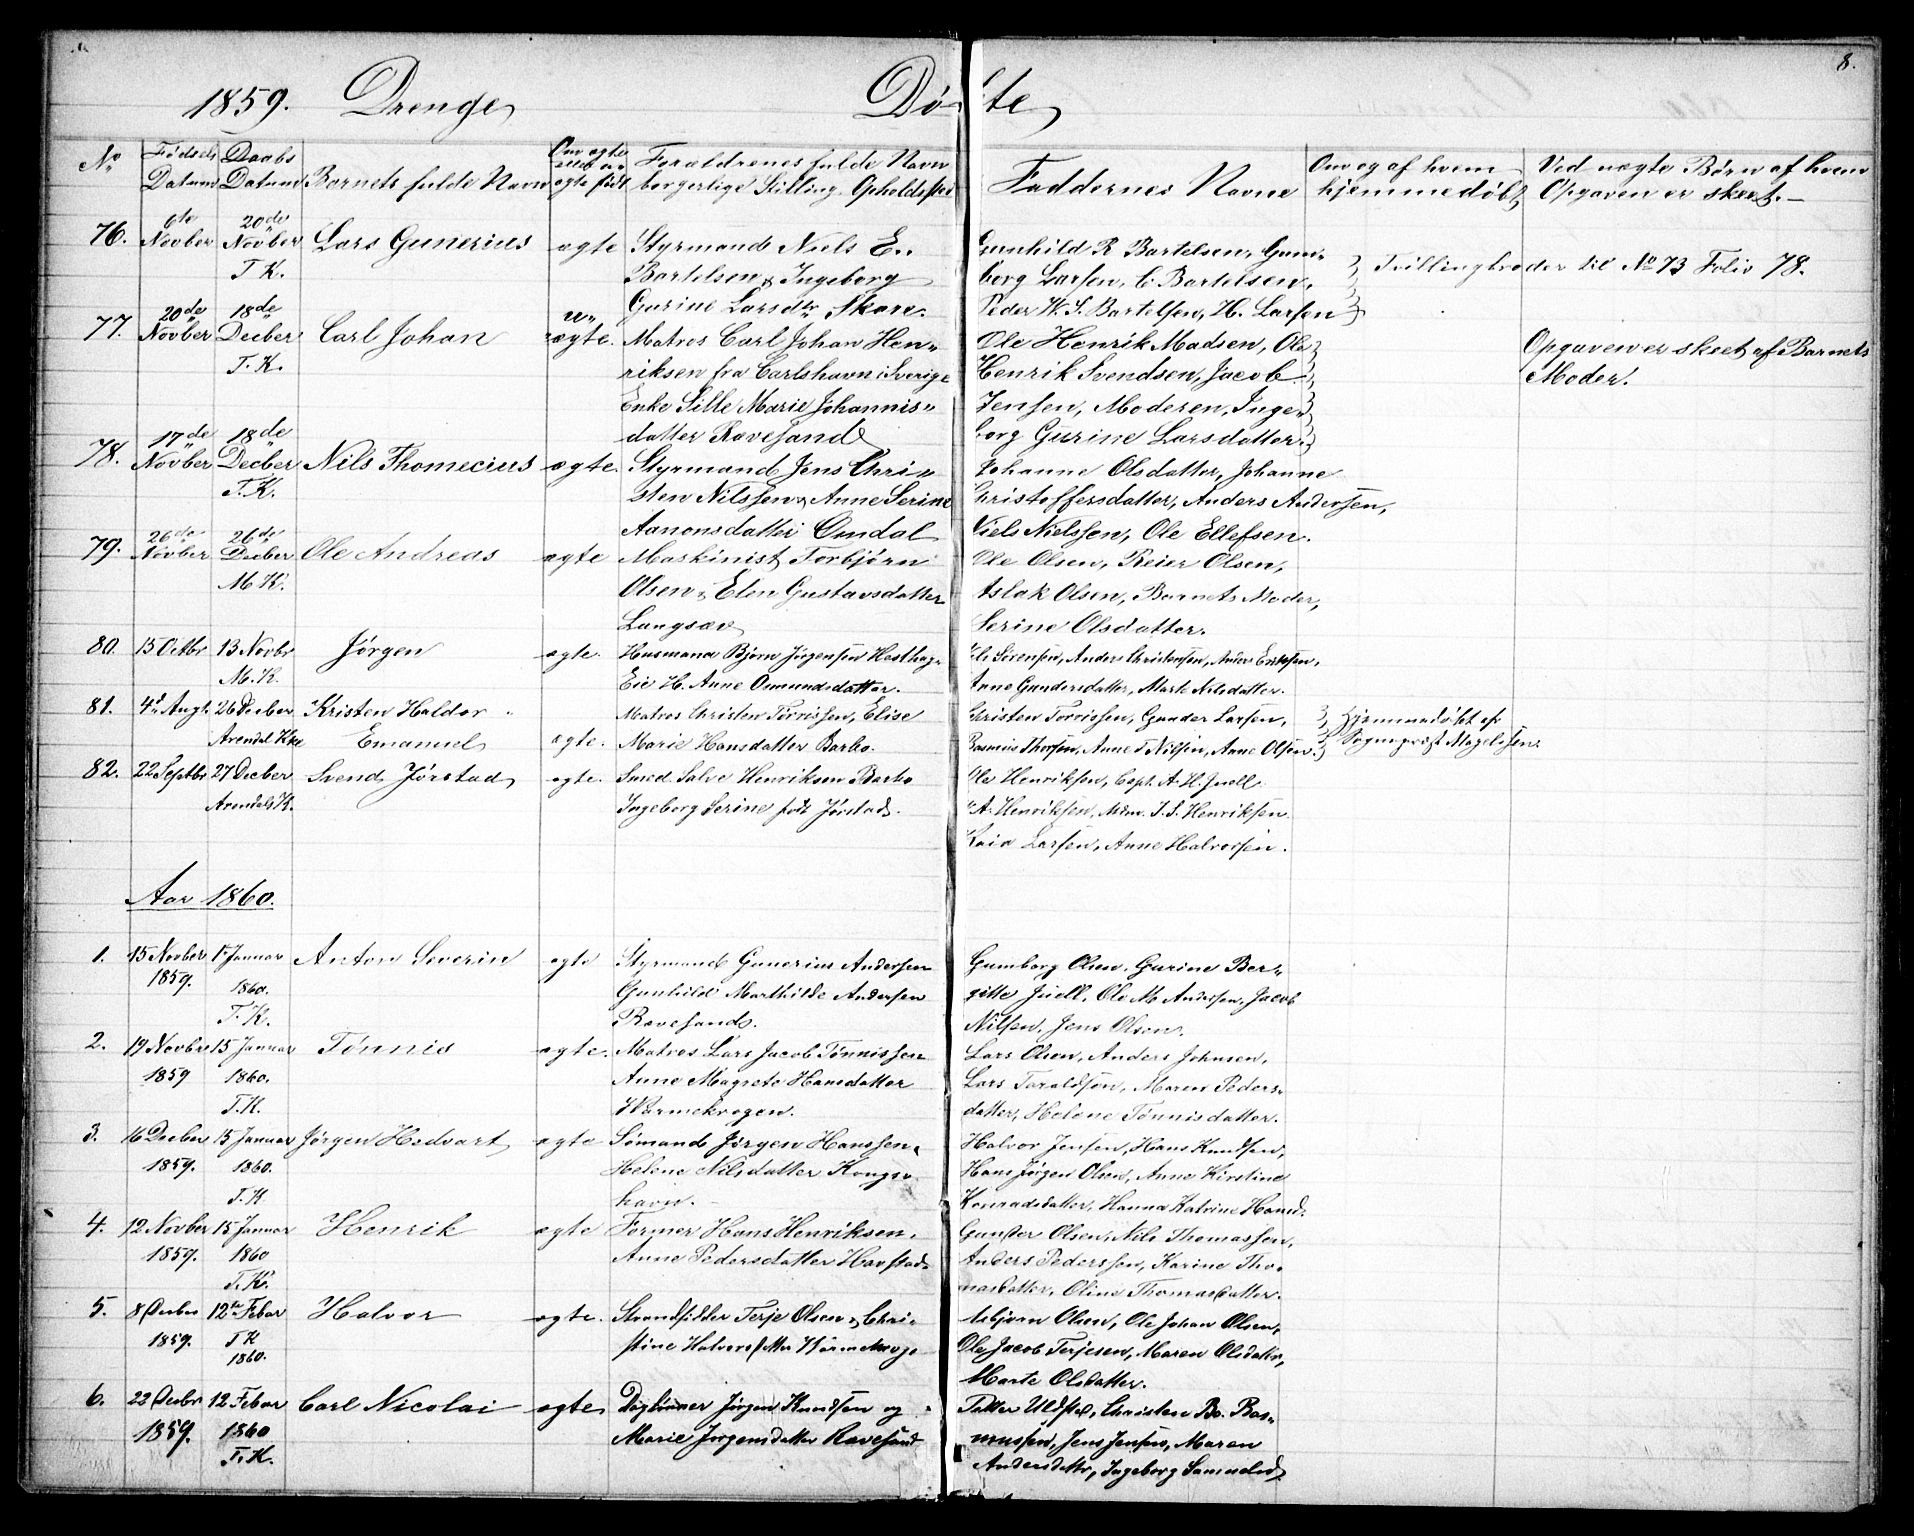 8.
1859. Drenge Døbte
No Fødsels Datum Daabs Datum Barnets fulde Navn Om ægte eller uægte født Forældrenes fulde Navn borgerlige Stilling, Opholdssted Faddernes Navne Om og af hvem hjemmedøbt Ved uægte Børn af hvem Opgaven er skeet.
76. 6te Novber 20de Novber T. K. Lars Gunerius ægte Styrmand Niels E.
Bartelsen & Ingeborg
Gurine Larsdtr Skare.
Gunhild R Bartelsen, Gun-
borg Larsen, C. Bartelsen,
Peder W. S. Bartelsen, H. Larsen
Tvillingbroder til No 73 Folio 78.
77. 20de Novber 18de Decber T. K. Carl Johan u-ægte. Matros Carl Johan Hen-
riksen fra Carlshavn i Sverige
Enke Sille Marie Johannis-
datter Ravesand
Ole Henrik Madsen, Ole
Henrik Svendsen, Jacob
Jensen, Moderen, Inge-
borg Gurine Larsdatter.
Opgaven er skeet af Barnets
Moder.
78. 17de Novber 18de Decber T. K. Nils Thomecius ægte. Styrmand Jens Chri-
sten Nilssen & Anne Serine
Aanonsdatter Omdal
Johanne Olsdatter, Johanne
Christoffersdatter, Anders Andersen,
Niels Nielssen, Ole Ellefsen.
79. 26de Novber 26de Decber M. K. Ole Andreas ægte Maskinist Torbjørn
Olsen & Elen Gustavsdatter
Langsæv
Ole Olsen, Reier Olsen,
Aslak Olsen, Barnets Moder,
Serine Olsdatter.
80. 15 Octbr 13 Novbr M. K. Jørgen ægte. Husmand Bjørn Jørgensen Hesthag-
Eie H. Anne Omundsdatter.
Sørensen, Anders Christensen, Anders
Anne Gundersdatter, Marte Nilsdatter.
81. 4de Augt. 26 Decber Arendal Kke Kristen Haldor
Emanuel ægte. Matros Christen Tørrissen, Elise
Marie Hansdatter Barbo.
Christen Torrissen, Gunder Larsen,
Rasmus Thorsen, Anne T Nilsen, Anne Olsen.
Hjemmedøbt af
Sognepræst Magelssen.
82. 22 Septbr 27 Decber Arendals K. Svend Jørstad ægte. Smed Salve Henriksen Barbo
Ingeborg Serine født Jørstad.
Ole Henriksen, Capt. A. H. Juell
A. Henriksen, Mdm. I. S. Henriksen.
Larsen, Anne Halvorsen.
Aar 1860.
1. 15 Novber 1859. 1 Januar 1860. T. K. Anton Severin ægte Styrmand Gunerius Andersen
Gunhild Marthilde Andersen
Ravesand.
Gumborg Olsen, Gurine Ber-
gitte Juell, Ole M Andersen, Jacob
Nilsen, Jens Olsen.
2. 19 Novbr 1859 15 Januar 1860. T. K. Tønnis ægte. Matros Lars Jacob Tønnissen
Anne Magrete Hansdatter
Lars Olsen, Anders Johnsen,
Lars Taraldsen, Maren Peders-
datter, Helene Tønnisdatter.
3. 16 Decber 1859. 15 Januar 1860. T. K. Jørgen Hedvart ægte Sømand Jørgen Hanssen
Helene Nilsdatter Kongs-
havn.
Halvor Jensen, Hans Knudsen,
Hans Jørgen Olsen, Anne Kirstine
Konradsdatter, Hanna Katrine Hansd.
4. 12 Novber 1859. 15 Januar 1860 T. K. Henrik ægte Former Hans Henriksen,
Anne Pedersdatter Havstad
Gunder Olsen, Nils Thomassen,
Anders Pederssen, Karine Tho-
masdatter, Oline Thomasdatter.
5. 8 Decber 1859. 12te Febar T K 1860. Halvor ægte. Strandsidder Terje Olsen & Chri-
stine Halvorsdatter
Asbjørn Olsen, Ole Johan Olsen,
Ole Jacob Terjesen, Maren Olsdatter,
Marte Olsdatter.
6. 22 Decbr 1859. 12 Febar 1860 T. K. Carl Nicolai ægte Dagleiner Jørgen Knudsen og
Marie Jørgensdatter Ravesand
Petter Christen Bo. Ras-
mussen, Jens Jensen, Maren
Andersdatter, Ingeborg Samuelsd.